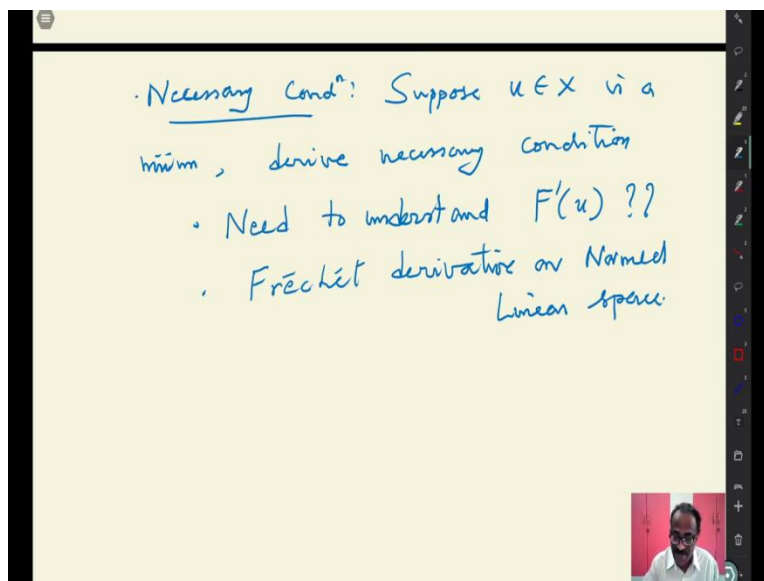 · Necessary Condⁿ: Suppose u ∈ X is a
miīm, derive necessary condition
· Need to understand F'(u) ??
· Fréchét derivative on Normed
Linear space.